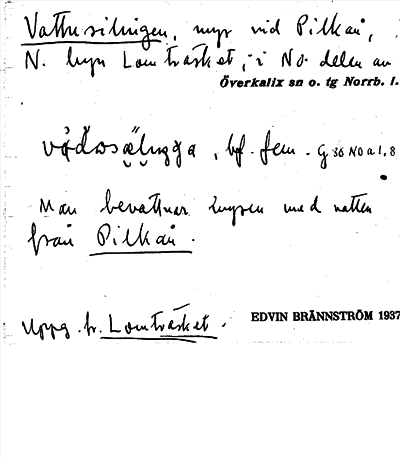 Vattusilningen, myr vid Pilkån,
N. byn Lomträsket, i No. delen av
Överkalix sn o. tg Norrb. l.
bf. fem. G 36 NO a 1, 8
Man bevattnar myren med vatten
från Pilkån.
Uppg. fr. Lomträsket.
EDVIN BRÄNNSTRÖM 1937